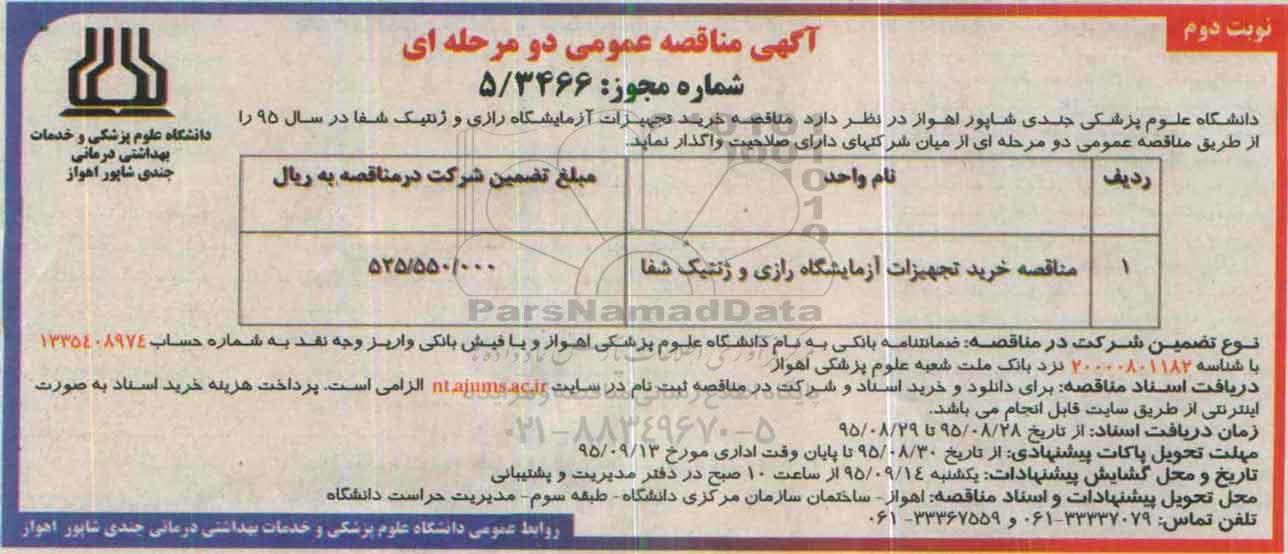 نوبت دوم
آگهی مناقصه عمومی دو مرحله ای
شماره مجوز: ۵/۳۴۶۶
دانشگاه علوم پزشکی و خدمات
بهداشتی درمانی
جندی شاپور اهواز
دانشگاه علوم پزشکی جندی شاپور اهواز در نظر دارد مناقصه خرید تجهیزات آزمایشگاه رازی و ژنتیک شفا در سال ۹۵ را
از طریق مناقصه عمومی دو مرحله ای از میان شرکتهای دارای صلاحیت واگذار نماید.
ردیف نام واحد مبلغ تضمین شرکت درمناقصه به ریال
۱ مناقصه خرید تجهیزات آزمایشگاه رازی و ژنتیک شفا ۵۲۵/۵۵۰/۰۰۰
ParsNamadData
نوع تضمین شرکت در مناقصه: ضمانتنامه بانکی به نام دانشگاه علوم پزشکی اهواز و یا فیش بانکی واریز وجه نقد به شماره حساب ۱۳۳۵۴۰۸۹۷۴
با شناسه ۲۰۰۰۰۸۰۱۱۸۲ نزد بانک ملت شعبه علوم پزشکی اهواز
دریافت اسناد مناقصه: برای دانلود و خرید اسناد و شرکت در مناقصه ثبت نام در سایت nt.ajums.ac.ir الزامی است. پرداخت هزینه خرید اسناد به صورت
اینترنتی از طریق سایت قابل انجام می باشد.
۰۲۱-۸۸۳۴۹۶۷۰-۵
زمان دریافت اسناد: از تاریخ ۹۵/۰۸/۲۸ تا ۹۵/۰۸/۲۹
مهلت تحویل پاکات پیشنهادی: از تاریخ ۹۵/۰۸/۳۰ تا پایان وقت اداری مورخ ۹۵/۰۹/۱۳
تاریخ و محل گشایش پیشنهادات: یکشنبه ۹۵/۰۹/۱۴ از ساعت ۱۰ صبح در دفتر مدیریت و پشتیبانی
محل تحویل پیشنهادات و اسناد مناقصه: اهواز- ساختمان سازمان مرکزی دانشگاه- طبقه سوم- مدیریت حراست دانشگاه
تلفن تماس: ۳۳۳۳۷۰۷۹-۰۶۱ و ۳۳۳۶۷۵۵۹- ۰۶۱
روابط عمومی دانشگاه علوم پزشکی و خدمات بهداشتی درمانی جندی شاپور اهواز